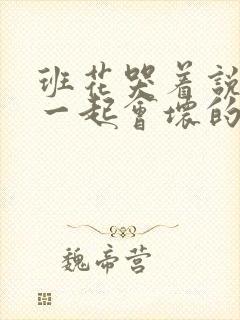 班花哭着説
一起會壞的
魏帝营